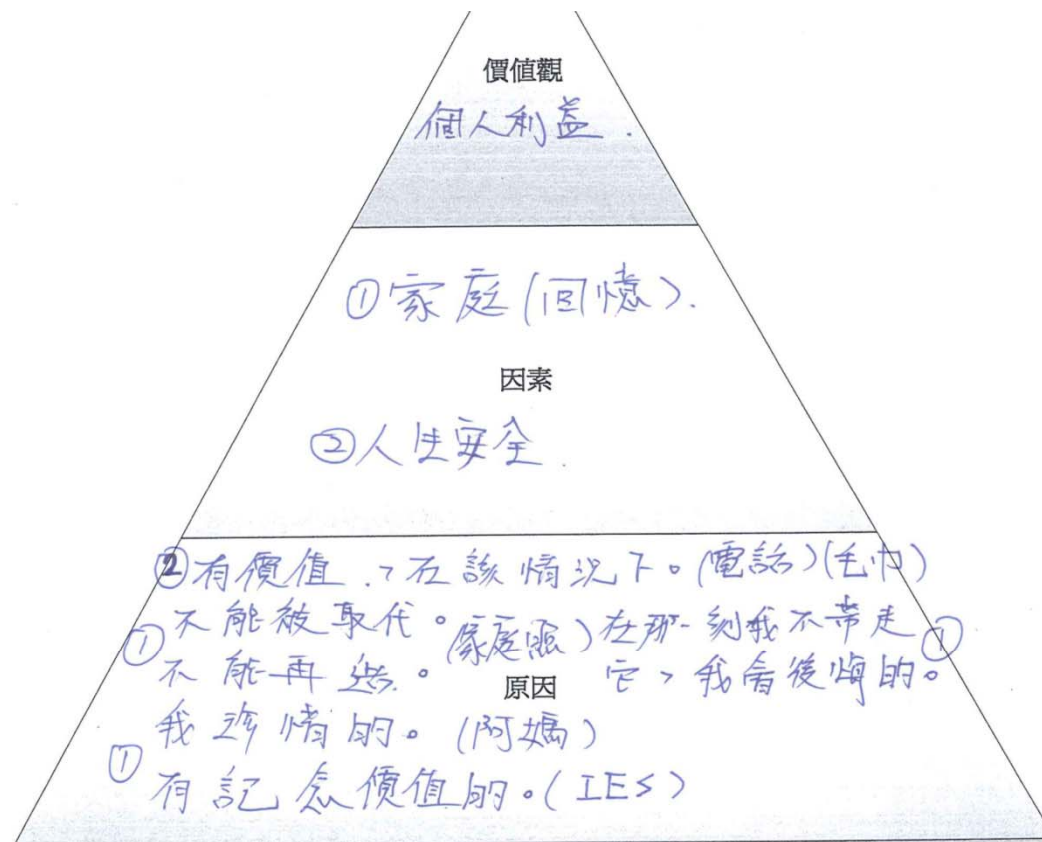 價值觀
個人利益.
①家庭(回憶).
因素
②人生安全.
②有價值.,在該情況下。(電話)(毛巾)
①不能被取代。(家庭照)在那一刻我不帶走①
不能再造。 它,我會後悔的。
原因
我珍惜的。(阿媽)
①有記念價值的。(IES)